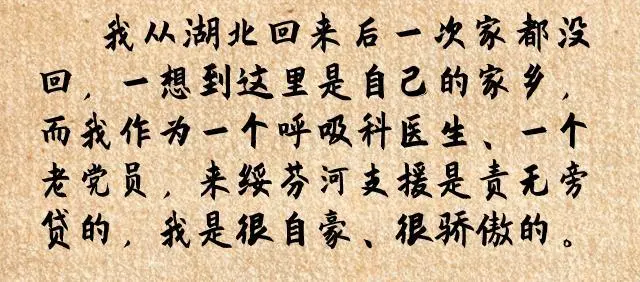 我从湖北回来后一次家都没
回，一想到这里是自己的家乡，
而我作为一个呼吸科医生、一个
老党员，来绥芬河支援是责无旁
贷的，我是很自豪、很骄傲的。